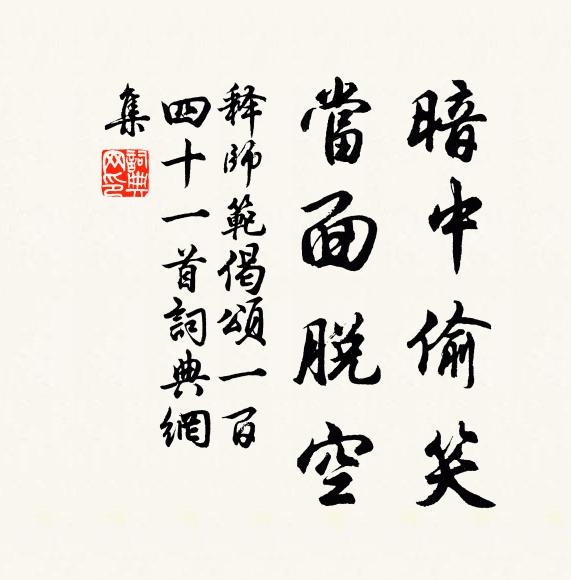 暗中偷笑
當面脱空
释師範偈頌一百
四十一首詞典網
集
詞典
网印